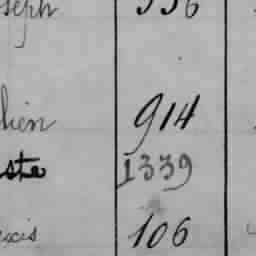 seph 556
lien 914
ste 1339
exis 106